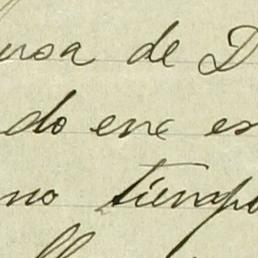 de D
do ene es
no tiempo